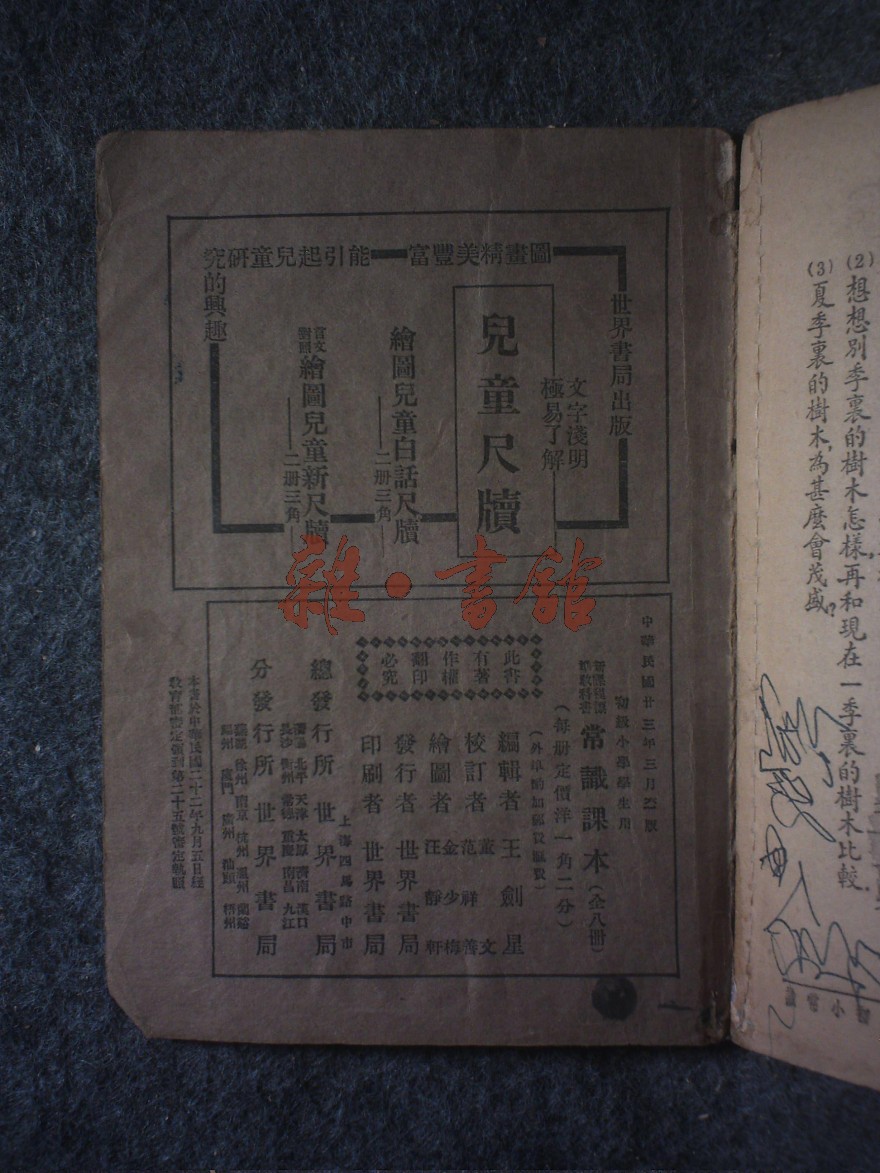 (2)想想別季裏的樹木怎樣再和現在一季裏的樹木比較.
(3)夏季裏的樹木,為甚麼會茂盛?
世界書局出版
圖畫精美豐富
能引起兒童研究的興趣
文字淺明
極易了解
兒童尺牘
繪圖兒童白話尺牘
二册三角
言文對照繪圖兒童新尺牘
二册三角
雜·書館
中華民國廿三年三月
初級小學學生用
常識課本(全八册)
(每册定價洋一角二分)
(外埠酌加郵費匯費)
此書有著作權翻印必究
編輯者 王劍星
校訂者 范祥善
繪圖者 汪靜軒
發行者 世界書局
印刷者 世界書局
上海四馬路中市
總發行所 世界書局
北平 天津 太原 濟南 漢口
長沙 衡州 常德 重慶 南昌 九江
分發行所 世界書局
徐州 南京 杭州 溫州 蘭谿
廈門 廣州 汕頭 梧州
本書於中華民國二十二年九月五日經
教育部審定領到第二十五號審定執照